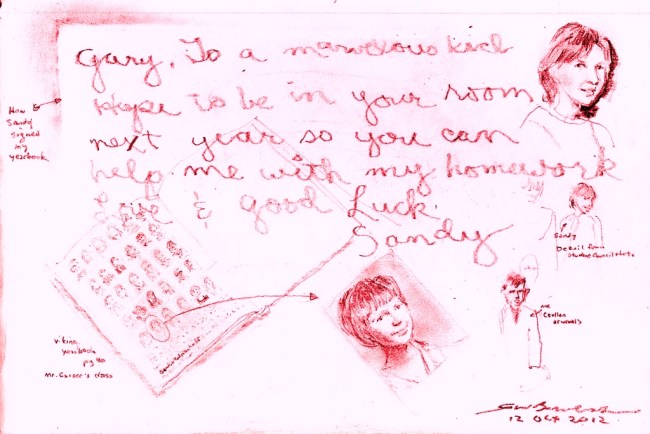 Gary, To a marvelous kid
Hope to be in your room
next year so you can
help me with my homework
Love & good Luck.
Sandy
How
Sandy
signed
my
yearbook
Sandy
Detail from
Student Council photo
me
Viking
yearbook
Mr. Garner's class
12 Oct 2012